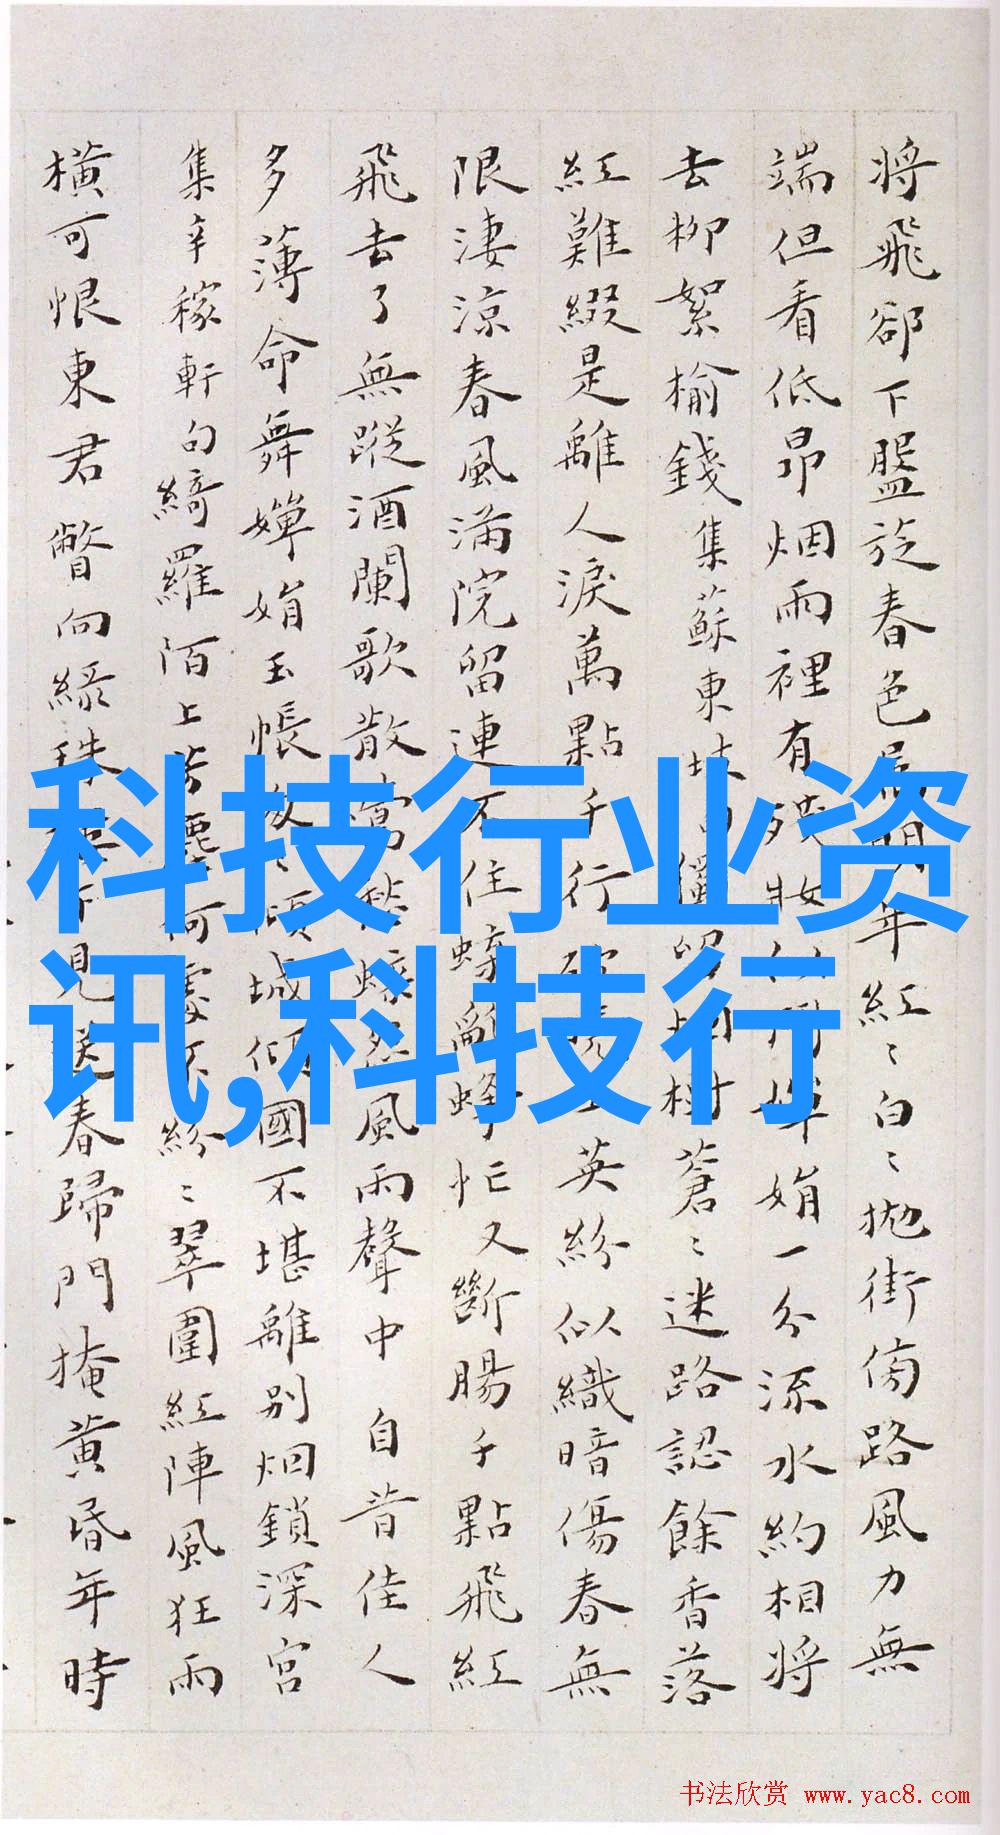 将飛卻下盤旋春色屬明年紅〻白〻拋街傍路風力無
端但看低昂烟雨裡有殘妝似用嬋娟一分流水約相將
去柳絮榆錢集蘇東坡句樹蒼〻迷路認餘香落
紅難綴是離人淚萬點千行英紛似織暗傷春無
限淒涼春風滿院留連不住蜂忙又斷腸千點飛紅
飛去了無蹤酒闌歌散萬愁風雨聲中 自昔佳人
多薄命舞嬋娟玉帳傾城傾國不堪離別烟鎖深宮
集辛稼軒句綺羅陌上芳塵何處不紛〻翠圍紅陣風狂雨
橫可恨東君瞥向綠珠樓下見送春歸門掩黃昏年時
科技行业资
讯,科技行
书法欣赏 www.yac8.com